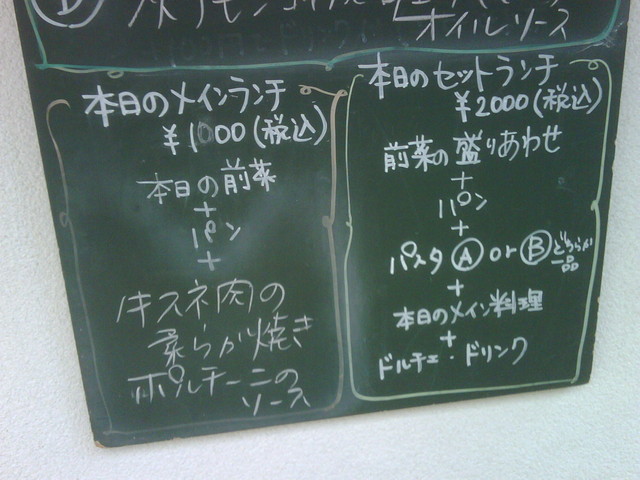 オイルソース
本日のメインランチ
¥1000(税込)
本日の前菜
+
パン
+
牛スネ肉の
柔らか焼き
ポルチーニの
ソース
本日のセットランチ
¥2000(税込)
前菜の盛りあわせ
+
パン
+
パスタ Ⓐ or Ⓑ どちらか一品
+
本日のメイン料理
+
ドルチェ・ドリンク